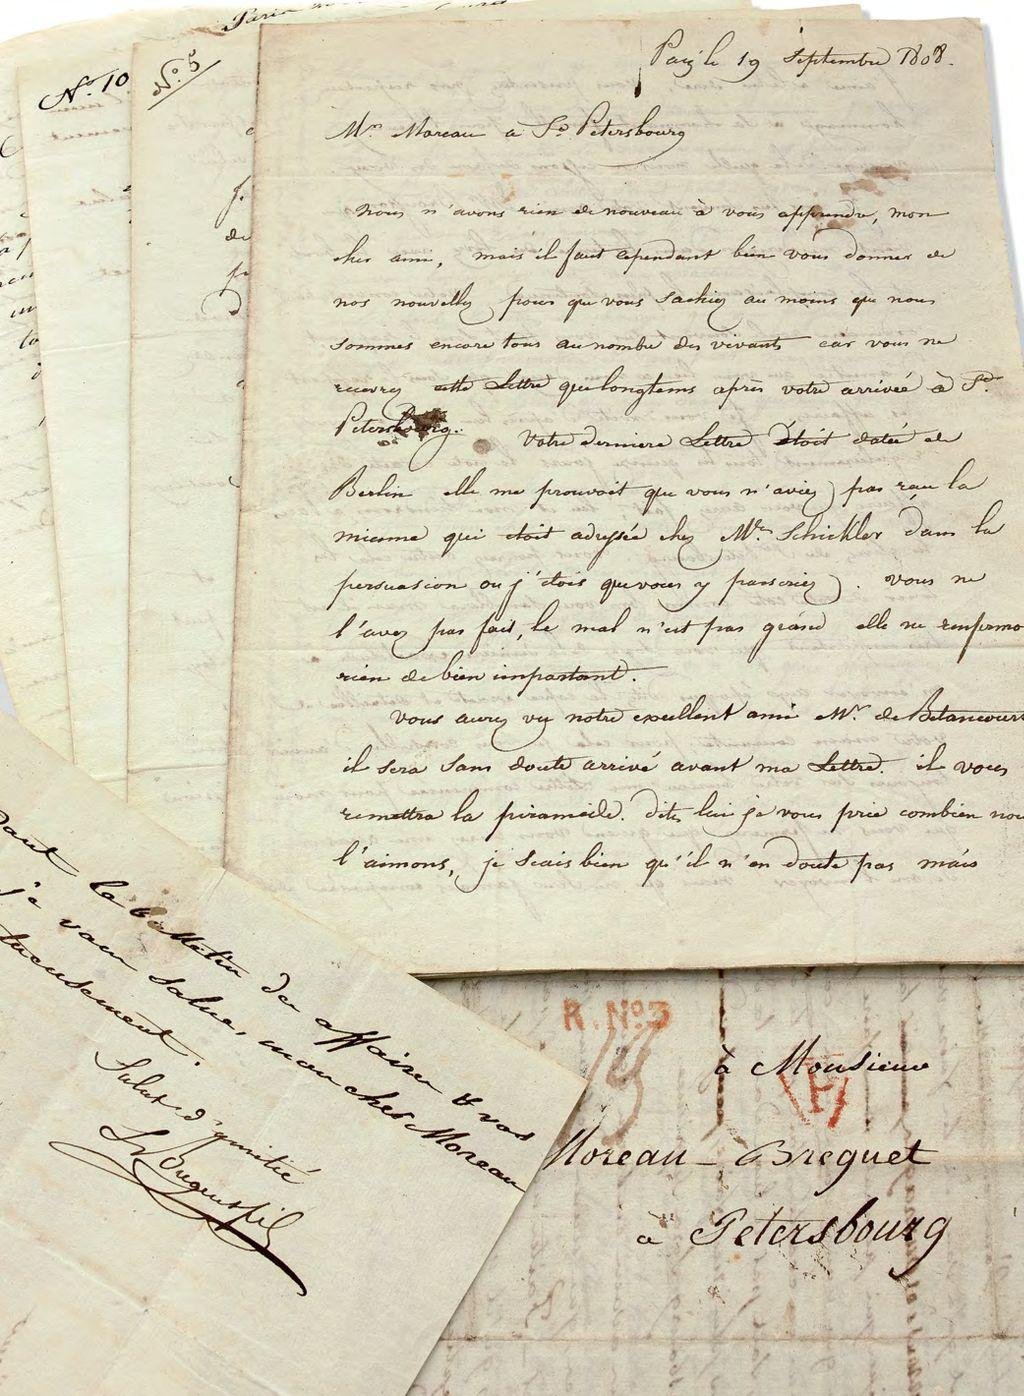 Paris
No. 10
No. 5
Paris le 19 Septembre 1808.
Mr. Moreau a St. Petersbourg
Nous n'avons rien de nouveau à vous apprendre, mon
cher ami, mais il faut cependant bien vous donner de
nos nouvelles pour que vous sachiez au moins que nous
sommes encore tous au nombre des vivants car vous ne
recevrez cette Lettre que longtems après votre arrivée à St.
Petersbourg. Votre derniere Lettre étoit datée de
Berlin elle me prouvoit que vous n'aviez pas reçu la
mienne qui étoit adressée chez Mr. Schickler dans la
persuasion ou j'étois que vous y passeriez. vous ne
l'avez pas fait, le mal n'est pas grand elle ne renfermo
rien de bien important.
Vous aurez vu notre excellent ami Mr. de Betancourt
il sera sans doute arrivé avant ma Lettre. il vous
remettra la piramide. dites lui je vous prie combien nou
l'aimons, je scais bien qu'il n'en doute pas mais
le bulletin de affaires & vos
je vous salue, mon cher Moreau
Salut d'amitié
R. No 3
à Monsieur
P
Moreau-Breguet
a Petersbourg